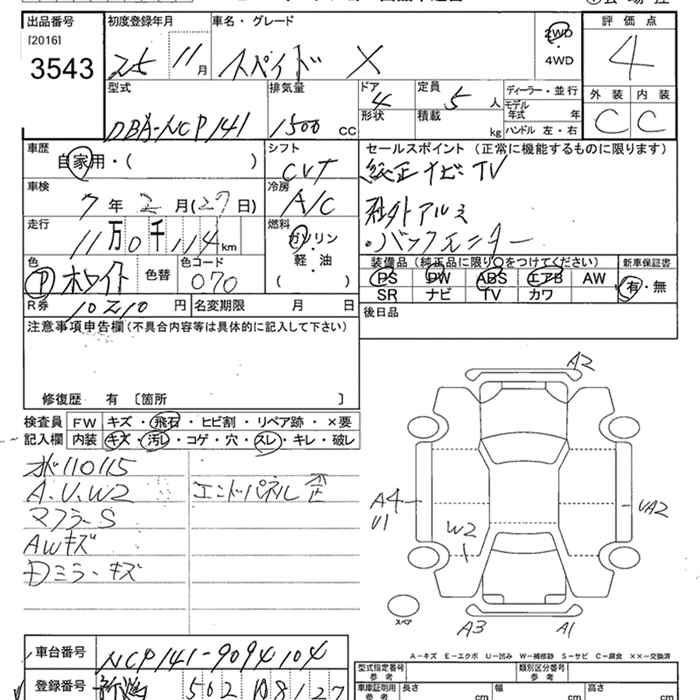 出品番号 初度登録年月 車名・グレード 評価点
[2016] 3543 25 11月 スペイド X 2WD・4WD 4
型式 排気量 ドア 定員 ディーラー・並行 外装 内装
DBA-NCP141 1500 CC 4 5人 モデル年式 年 C C
形状 積載 kg ハンドル 左・右
車歴 シフト セールスポイント(正常に機能するものに限ります)
自家用・( ) CVT 純正ナビTV
車検 冷房
7年2月(27日) A/C 社外アルミ
走行 燃料
11万0千114km ガソリン・軽・油 ( ) ・バックモニター
色 色替 色コード 装備品(純正品に限り○をつけてください) 新車保証書
P ホワイト 070 PS PW ABS エアB AW 有・無
SR ナビ TV カワ
R券 10210円 名変期限 月 日 後日品
注意事項申告欄(不具合内容等は具体的に記入して下さい)
修復歴 有〔箇所 〕
検査員 FW キズ・飛石・ヒビ割・リペア跡・×要
記入欄 内装 キズ・汚レ・コゲ・穴・スレ・キレ・破レ
水110115
A.U.W2 エンドパネル歪
マフラーS
AWキズ
Dミラーキズ
A2
A4
U1
UA2
W2
スペア
A3 A1
A-キズ E-エクボ U-凹み W-補修跡 S-サビ C-腐食 ××-交換済
車台番号 NCP141-9094104
型式指定番号 参考 類別区分番号 参考
登録番号 新潟 502 108127
車庫証明用 参考 長さ cm 幅 cm 高さ cm